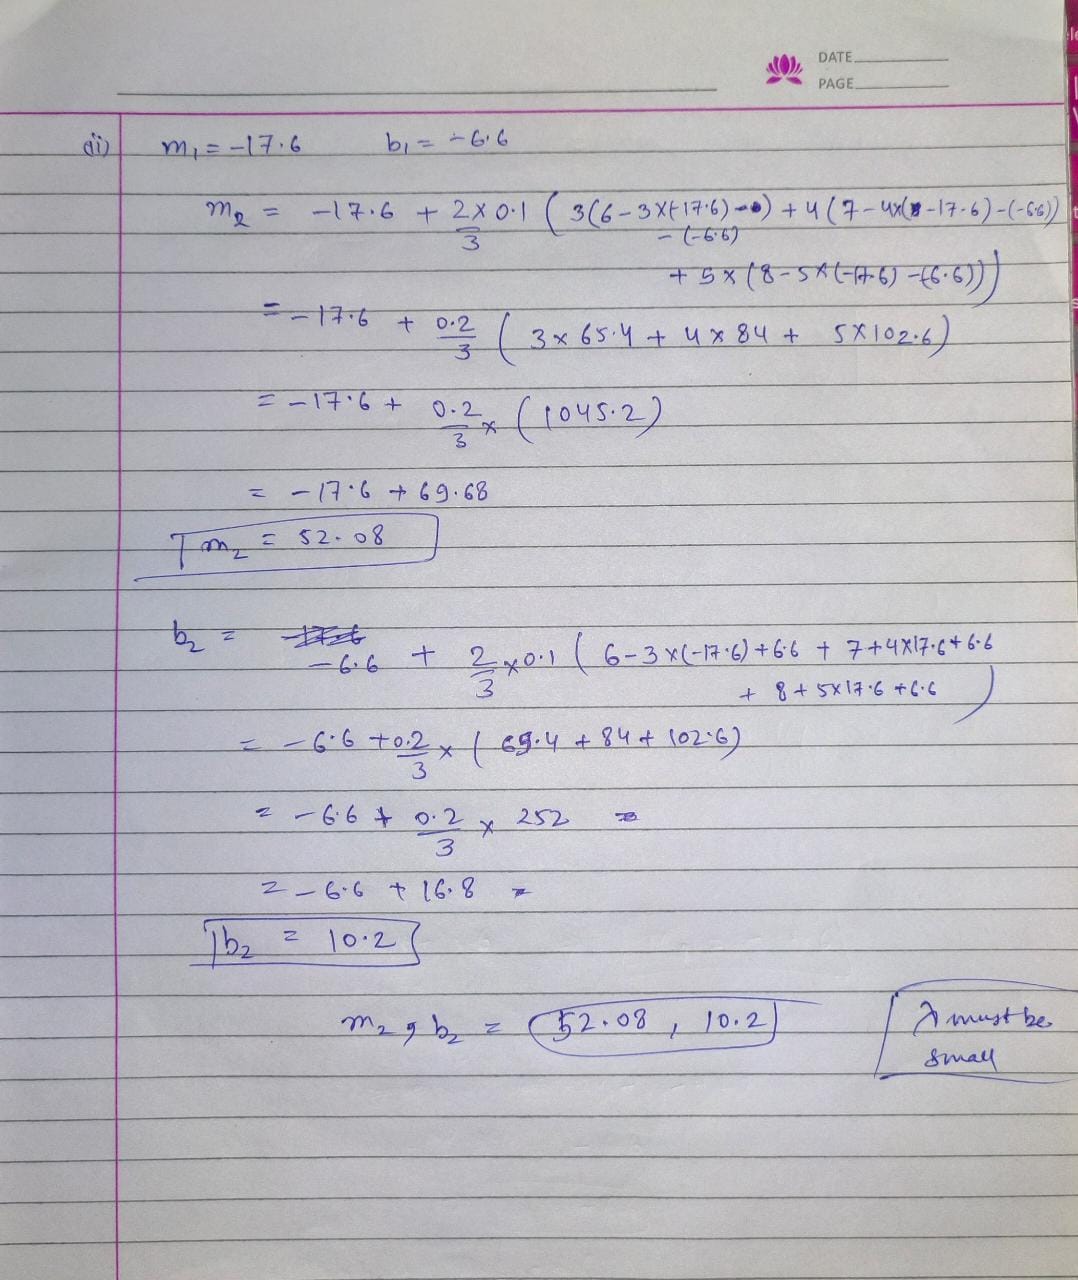 DATE
PAGE
(ii) m₁ = -17.6 b₁ = -6.6
m₂ = -17.6 + 2×0.1/3 ( 3(6-3×(-17.6) - (-6.6)) + 4(7-4×(-17.6)-(-6.6))
+ 5×(8-5×(-17.6)-(-6.6)))
= -17.6 + 0.2/3 ( 3×65.4 + 4×84 + 5×102.6)
= -17.6 + 0.2/3 × (1045.2)
= -17.6 + 69.68
m₂ = 52.08
b₂ = -6.6 + 2/3 ×0.1 ( 6-3×(-17.6)+6.6 + 7+4×17.6+6.6
+ 8+5×17.6+6.6 )
= -6.6 + 0.2/3 × ( 69.4 + 84 + 102.6)
= -6.6 + 0.2/3 × 252 =
= -6.6 + 16.8 =
b₂ = 10.2
m₂, b₂ = (52.08, 10.2)
λ must be
small